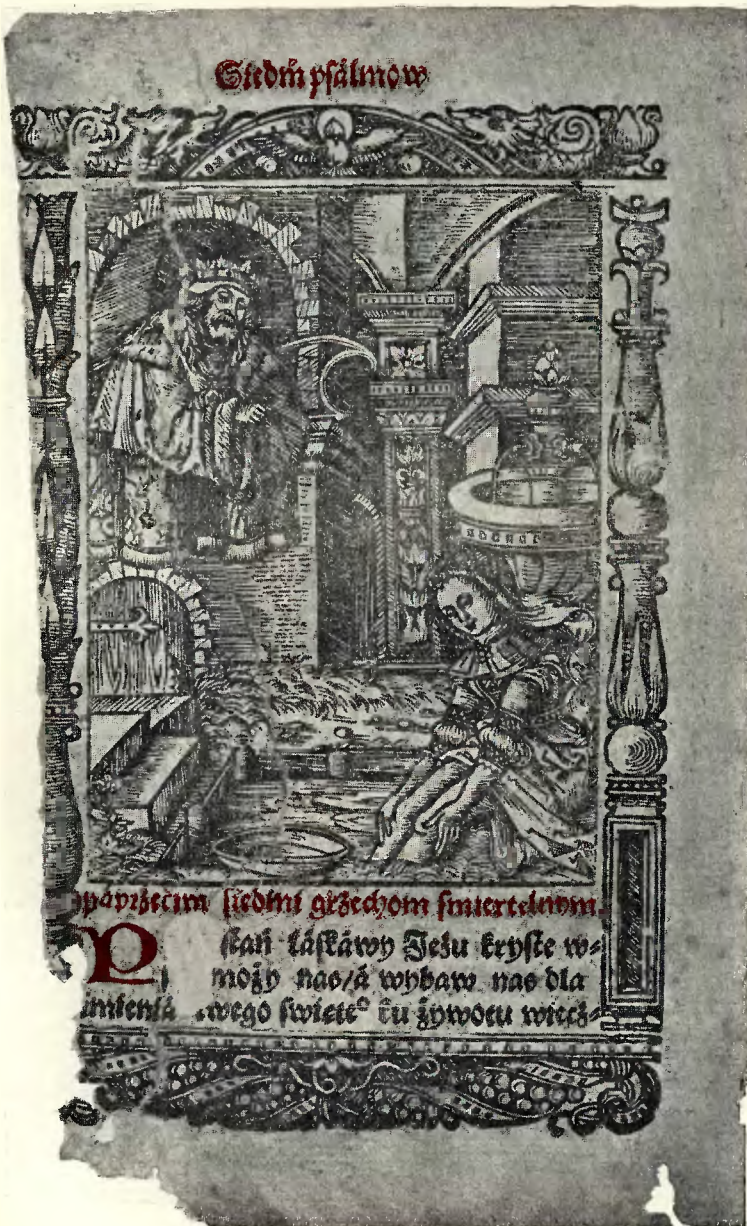 Siedḿ psálmow
siedmi grzechom smiertelnym.
stań láskáwy Jezu kryste w⸗
moży nas/á wybaw nas dla
imieniá twego swięte° ku żywotu wiecż⸗